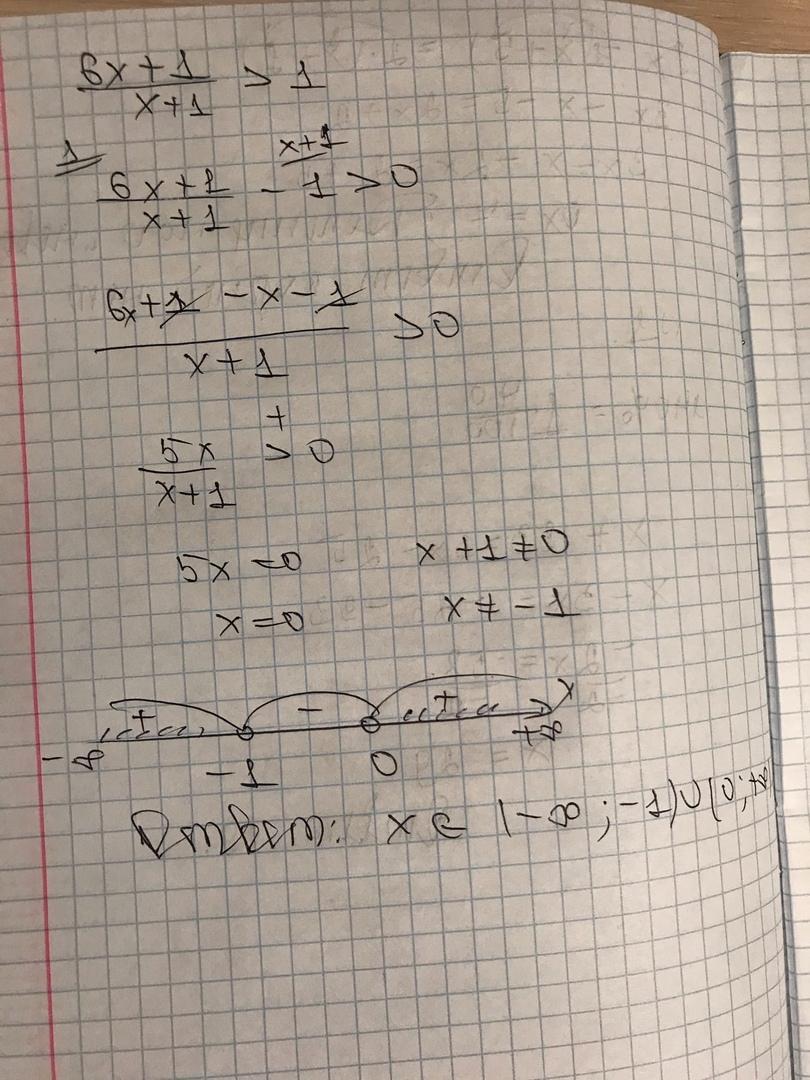 6x+1 / x+1 > 1
1 x+1
6x+1 / x+1 - 1 > 0
6x+1 -x-1 / x+1 > 0
+
5x / x+1 > 0
5x=0 x+1≠0
x=0 x≠-1
+ - + x
-∞ -1 0 +∞
Ответ: x∈(-∞;-1)∪(0;+∞)